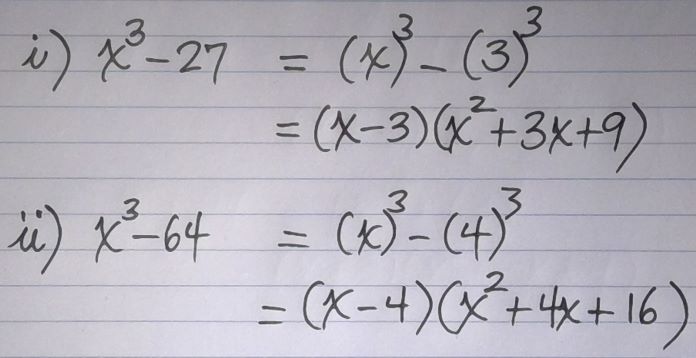 i) x³-27 = (x)³-(3)³
=(x-3)(x²+3x+9)
ii) x³-64 = (x)³-(4)³
=(x-4)(x²+4x+16)